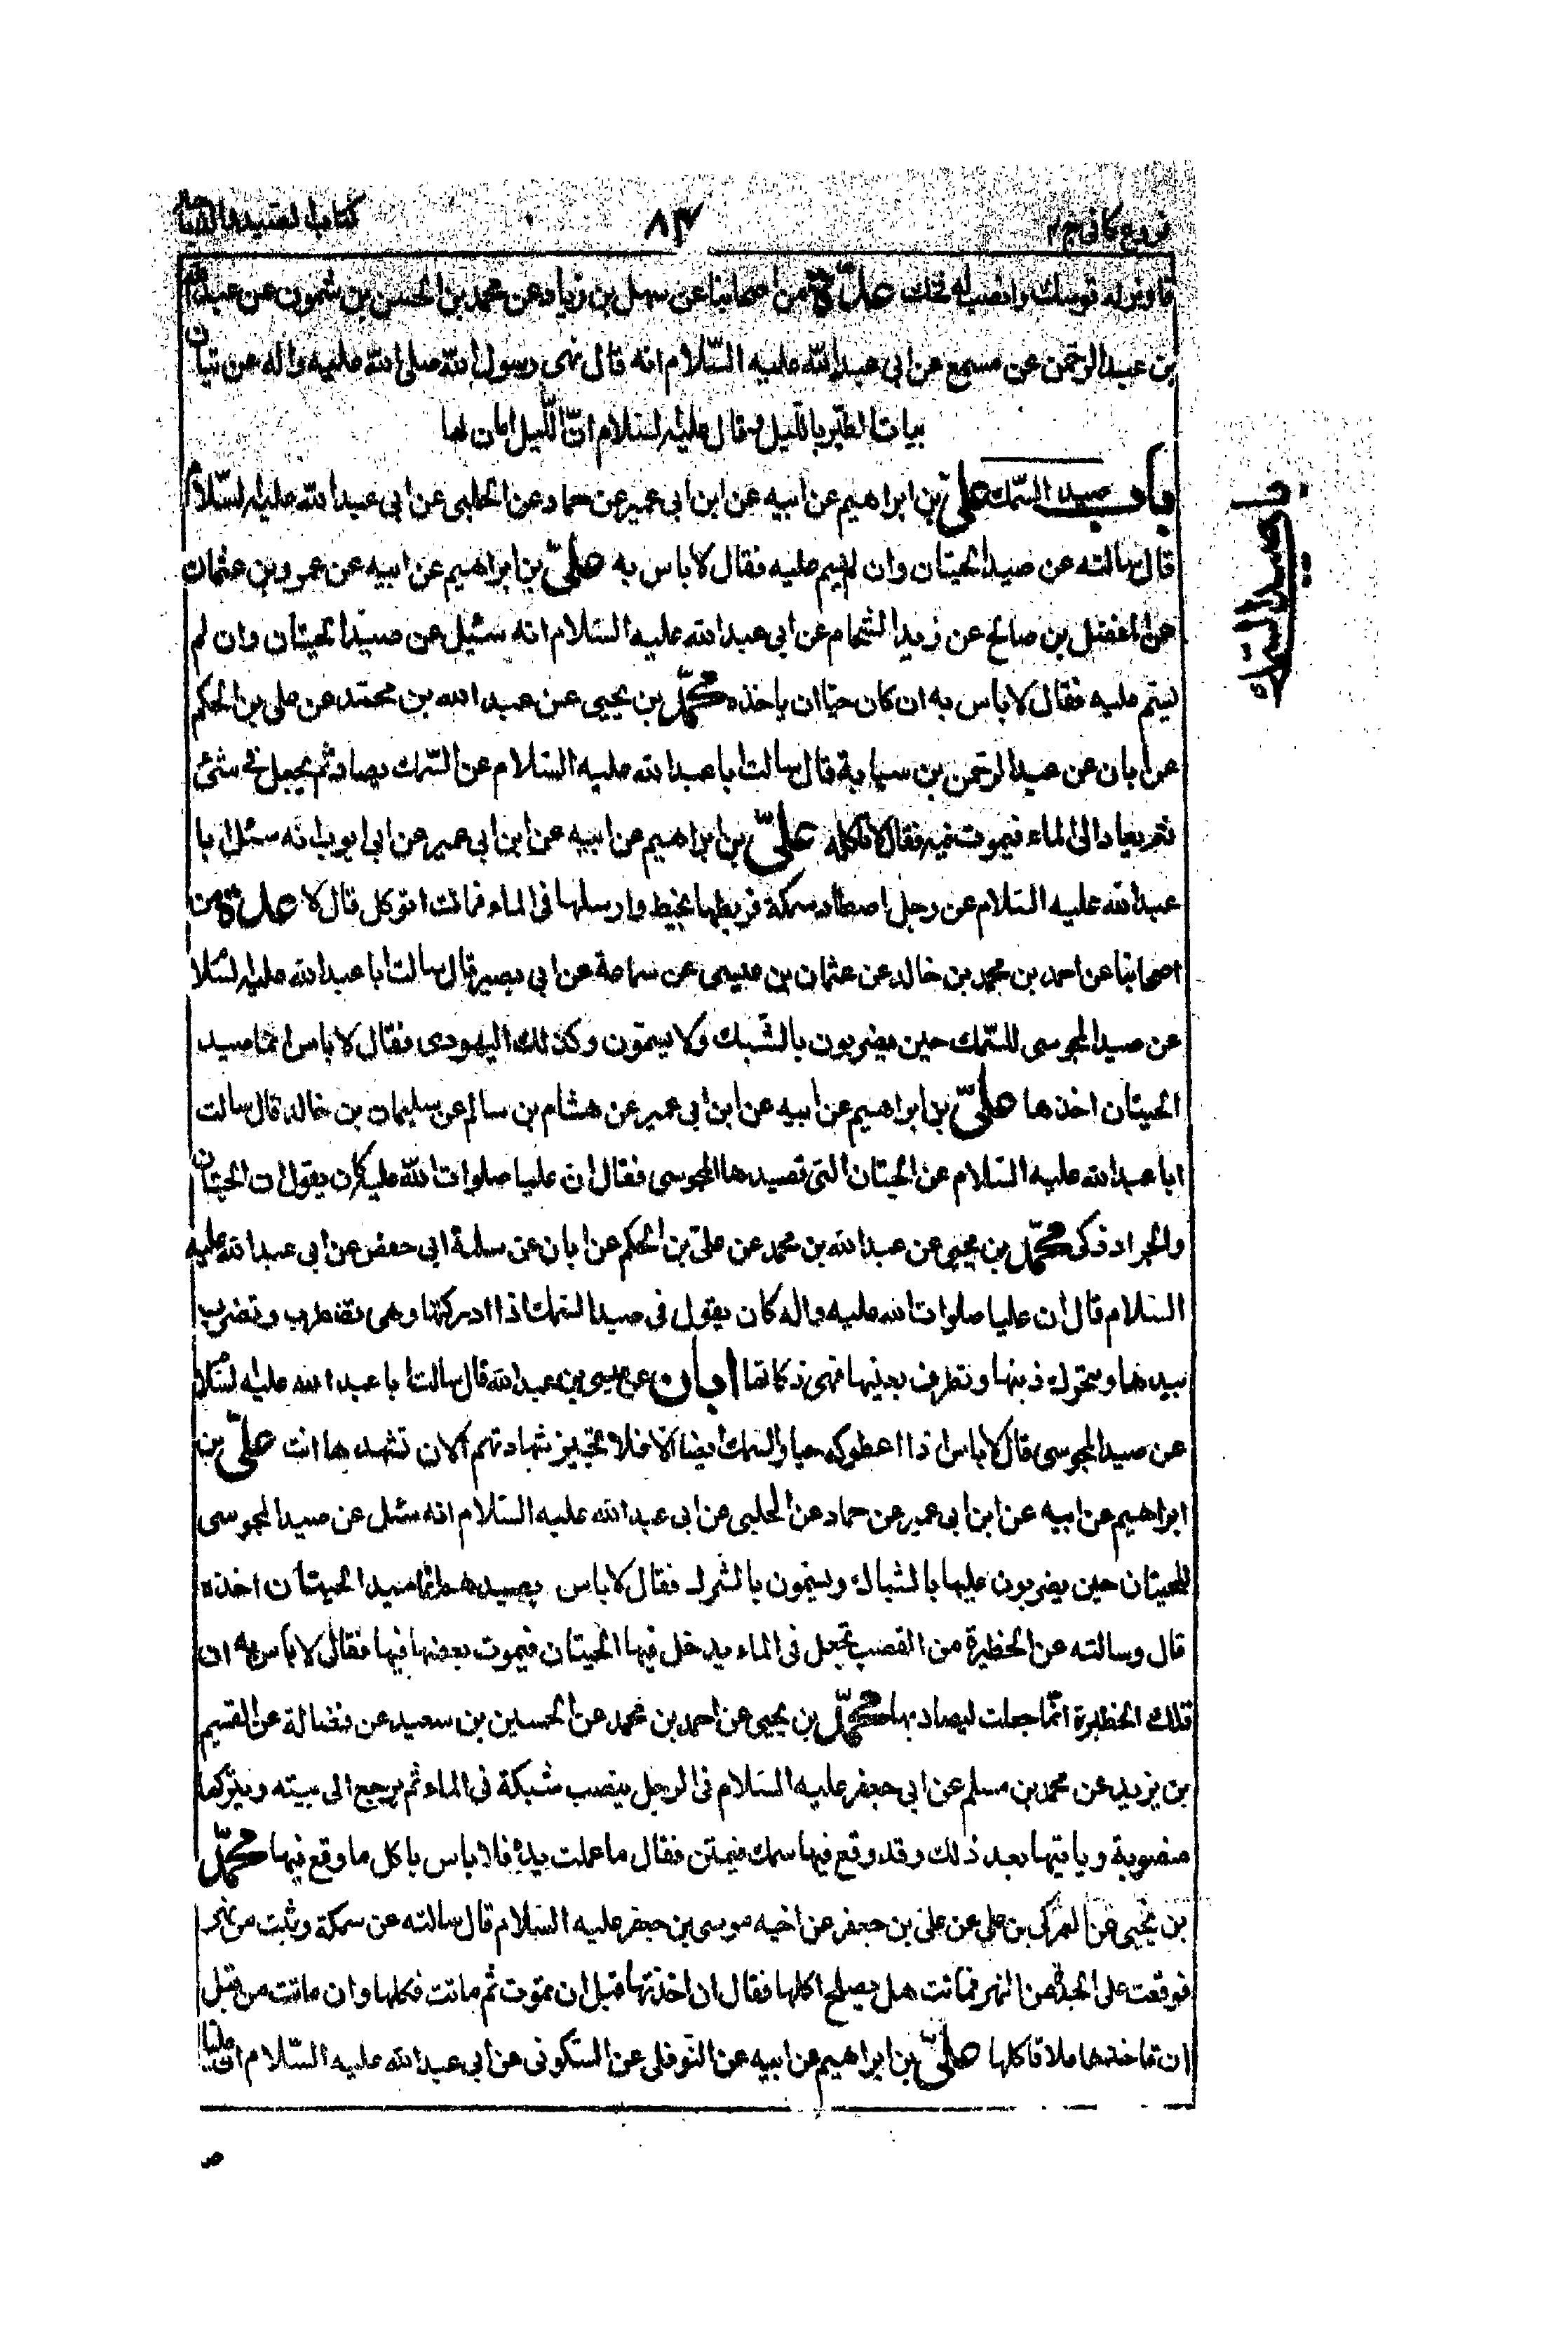 فروع كافى ج٢
٨٣
كتاب الصيد والذبائح
فاوتر له قوسك وانصب له فخك عدّة من اصحابنا عن سهل بن زياد عن محمد بن الحسن بن شمون عن عبد الله
بن عبد الرحمن عن مسمع عن ابى عبد الله عليه السّلام انه قال نهى رسول الله صلى الله عليه واله عن اتيان
بيات الطير بالليل وقال عليه السلام ان الليل امان لها
باب صيد السّمك علىّ بن ابراهيم عن ابيه عن ابن ابى عمير عن حماد عن الحلبى عن ابى عبد الله عليه السّلام
باب صيد السمك
قال سالته عن صيد الحيتان وان لم يسم عليه فقال لا باس به علىّ بن ابراهيم عن ابيه عن عمرو بن عثمان
عن المفضل بن صالح عن زيد الشحام عن ابى عبد الله عليه السّلام انه سئيل عن صيد الحيتان وان لم
يسم عليه فقال لا باس به ان كان حيا ان ياخذه محمّد بن يحيى عن عبد الله بن محمّد عن على بن الحكم
عن ابان عن عبد الرحمن بن سيابة قال سالت ابا عبد الله عليه السّلام عن السّمك يصاد ثم يجعل فى شئ
ثم يعاد الى الماء فيموت فيه فقال لا تاكله علىّ بن ابراهيم عن ابيه عن ابن ابى عمير عن ابى ايوب انه سئل ابا
عبد الله عليه السّلام عن رجل اصطاد سمكة فربطها بخيط وارسلها فى الماء فماتت اتوكل قال لا عدّة من
اصحابنا عن احمد بن محمد بن خالد عن عثمان بن عيسى عن سماعة عن ابى بصير قال سالت ابا عبد الله عليه السّلا
عن صيد المجوسى للسّمك حين يضربون بالشّبك ولا يسمّون وكذلك اليهودى فقال لا باس انما صيد
الحيتان اخذها علىّ بن ابراهيم عن ابيه عن ابن ابى عمير عن هشام بن سالم عن سليمان بن خالد قال سالت
ابا عبد الله عليه السّلام عن الحيتان التى تصيدها المجوسى فقال ان عليا صلوات الله عليه كان يقول ان الحيتان
والجراد ذكى محمّد بن يحيى عن عبد الله بن محمد عن علىّ بن الحكم عن ابان عن سلمة ابى حفص عن ابى عبد الله عليه
السّلام قال ان عليا صلوات الله عليه واله كان يقول فى صيد السّمك اذا ادركتها وهى تضطرب وتضرب
بيدها ويتحرك ذنبها وتطرف بعينها فهى ذكاتها ابان عن عيسى بن عبد الله قال سالت ابا عبد الله عليه السّلا
عن صيد المجوسى قال لا باس اذا اعطوكه حيا والسّمك ايضا والّا فلا تجيز شهادتهم الا ان تشهدها انت علىّ بن
ابراهيم عن ابيه عن ابن ابى عمير عن حماد عن الحلبى عن ابى عبد الله عليه السّلام انه سئل عن صيد المجوسى
للحيتان حين يضربون عليها بالشباك ويسمّون بالشرك فقال لا باس بصيدهم انما صيد الحيتان اخذه
قال وسالته عن الحظيرة من القصب تجعل فى الماء يدخل فيها الحيتان فيموت بعضها فيها فقال لا باس به ان
تلك الحظيرة انّما جعلت ليصاد بها محمّد بن يحيى عن احمد بن محمد عن الحسين بن سعيد عن فضالة عن القسم
بن يزيد عن محمد بن مسلم عن ابى جعفر عليه السّلام فى الرجل ينصب شبكة فى الماء ثم يرجع الى بيته ويتركها
منصوبة وياتيها بعد ذلك وقد وقع فيها سمك فيمتن فقال ما عملت يده فلا باس باكل ما وقع فيها محمّد
بن يحيى عن العمركى بن على عن علىّ بن جعفر عن اخيه موسى بن جعفر عليه السّلام قال سالته عن سمكة وثبت من نهر
فوقعت على الجدّ من النهر فماتت هل يصلح اكلها فقال ان اخذتها قبل ان تموت ثم ماتت فكلها وان ماتت من قبل
ان تاخذها فلا تاكلها علىّ بن ابراهيم عن ابيه عن النوفلى عن السّكونى عن ابى عبد الله عليه السّلام ان عليا
ص